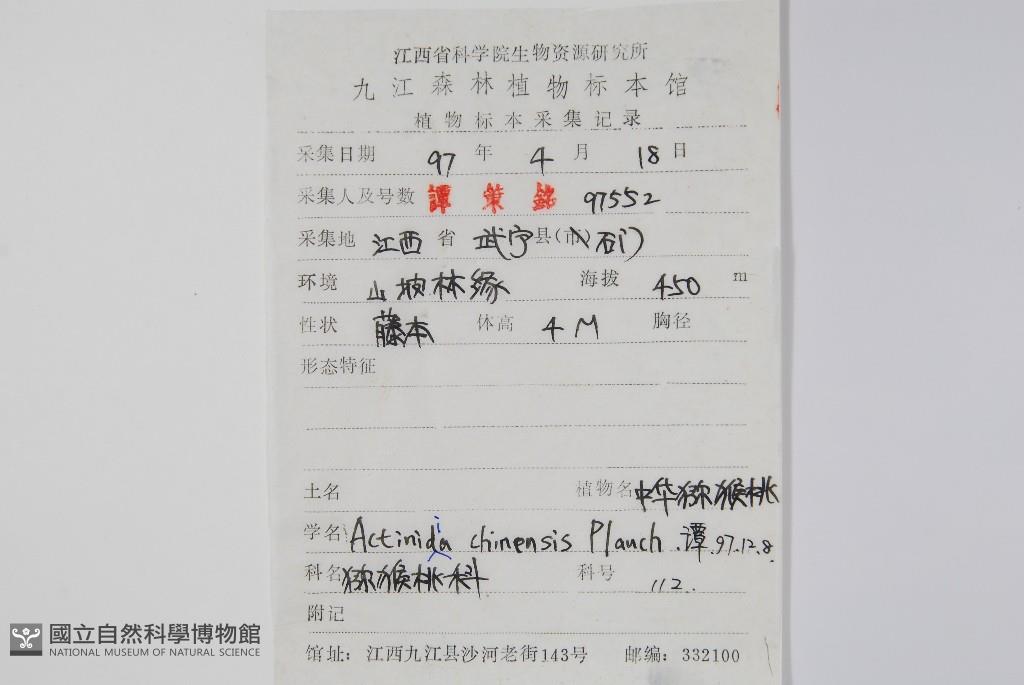 江西省科学院生物资源研究所
九江森林植物标本馆
植物标本采集记录
采集日期 97 年 4 月 18 日
采集人及号数 譚策銘 97552
采集地 江西 省 武宁 县(市) 石门
环境 山坡林缘 海拔 450 m
性状 藤本 体高 4 M 胸径
形态特征
土名 植物名 中华猕猴桃
学名 Actinidia chinensis Planch. 谭.97.12.8.
科名 猕猴桃科 科号 112.
附记
馆址: 江西九江县沙河老街143号 邮编: 332100
國立自然科學博物館
NATIONAL MUSEUM OF NATURAL SCIENCE